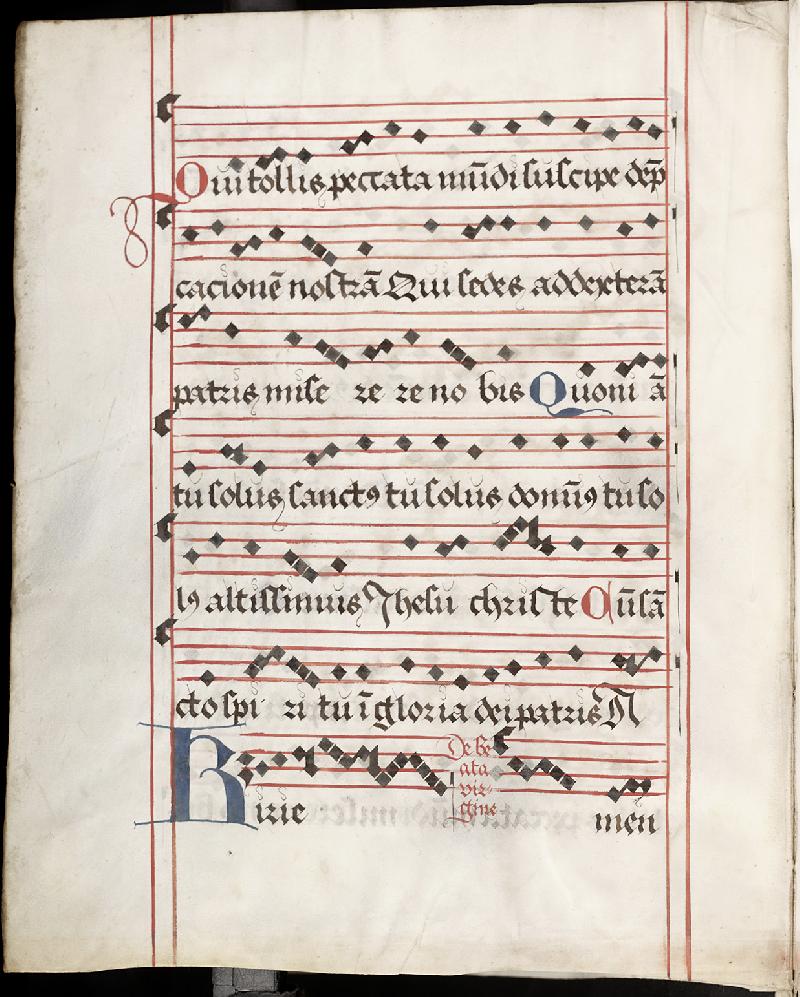 Qui tollis peccata mūdi suscipe dep̄
cacionē nostrā Qui sedes addexterā
patris mise re re no bis Quoni ā
tu solus sanctꝯ tu solus domīꝯ tu so
lꝯ altissimus Jhesu chris te Cū sā
cto spi ri tu ī gloria dei patris A
Kirie men
De be
ata
vir
gine